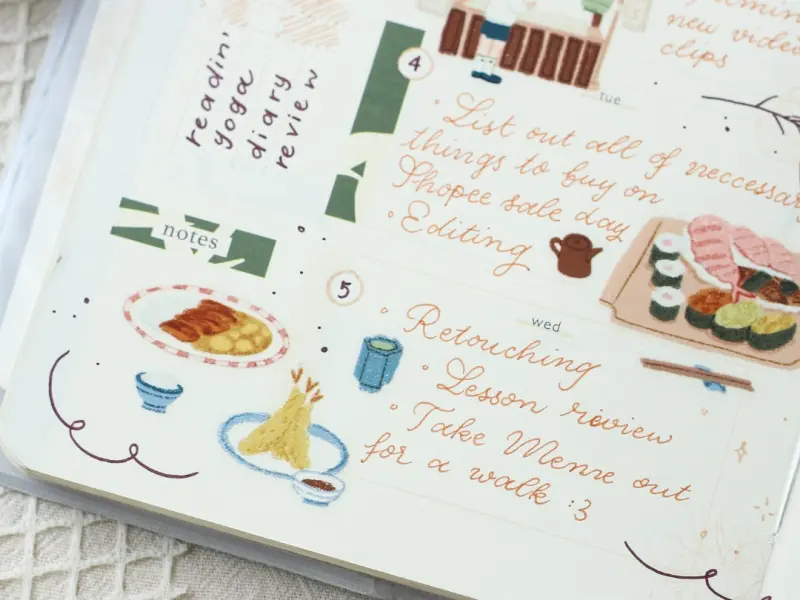 readin'
yoga
diary
review
notes
new video
clips
4
tue
• List out all of neccessar
things to buy on
Shopee sale day
• Editing
5
wed
• Retouching
• Lesson review
• Take Meme out
for a walk :3